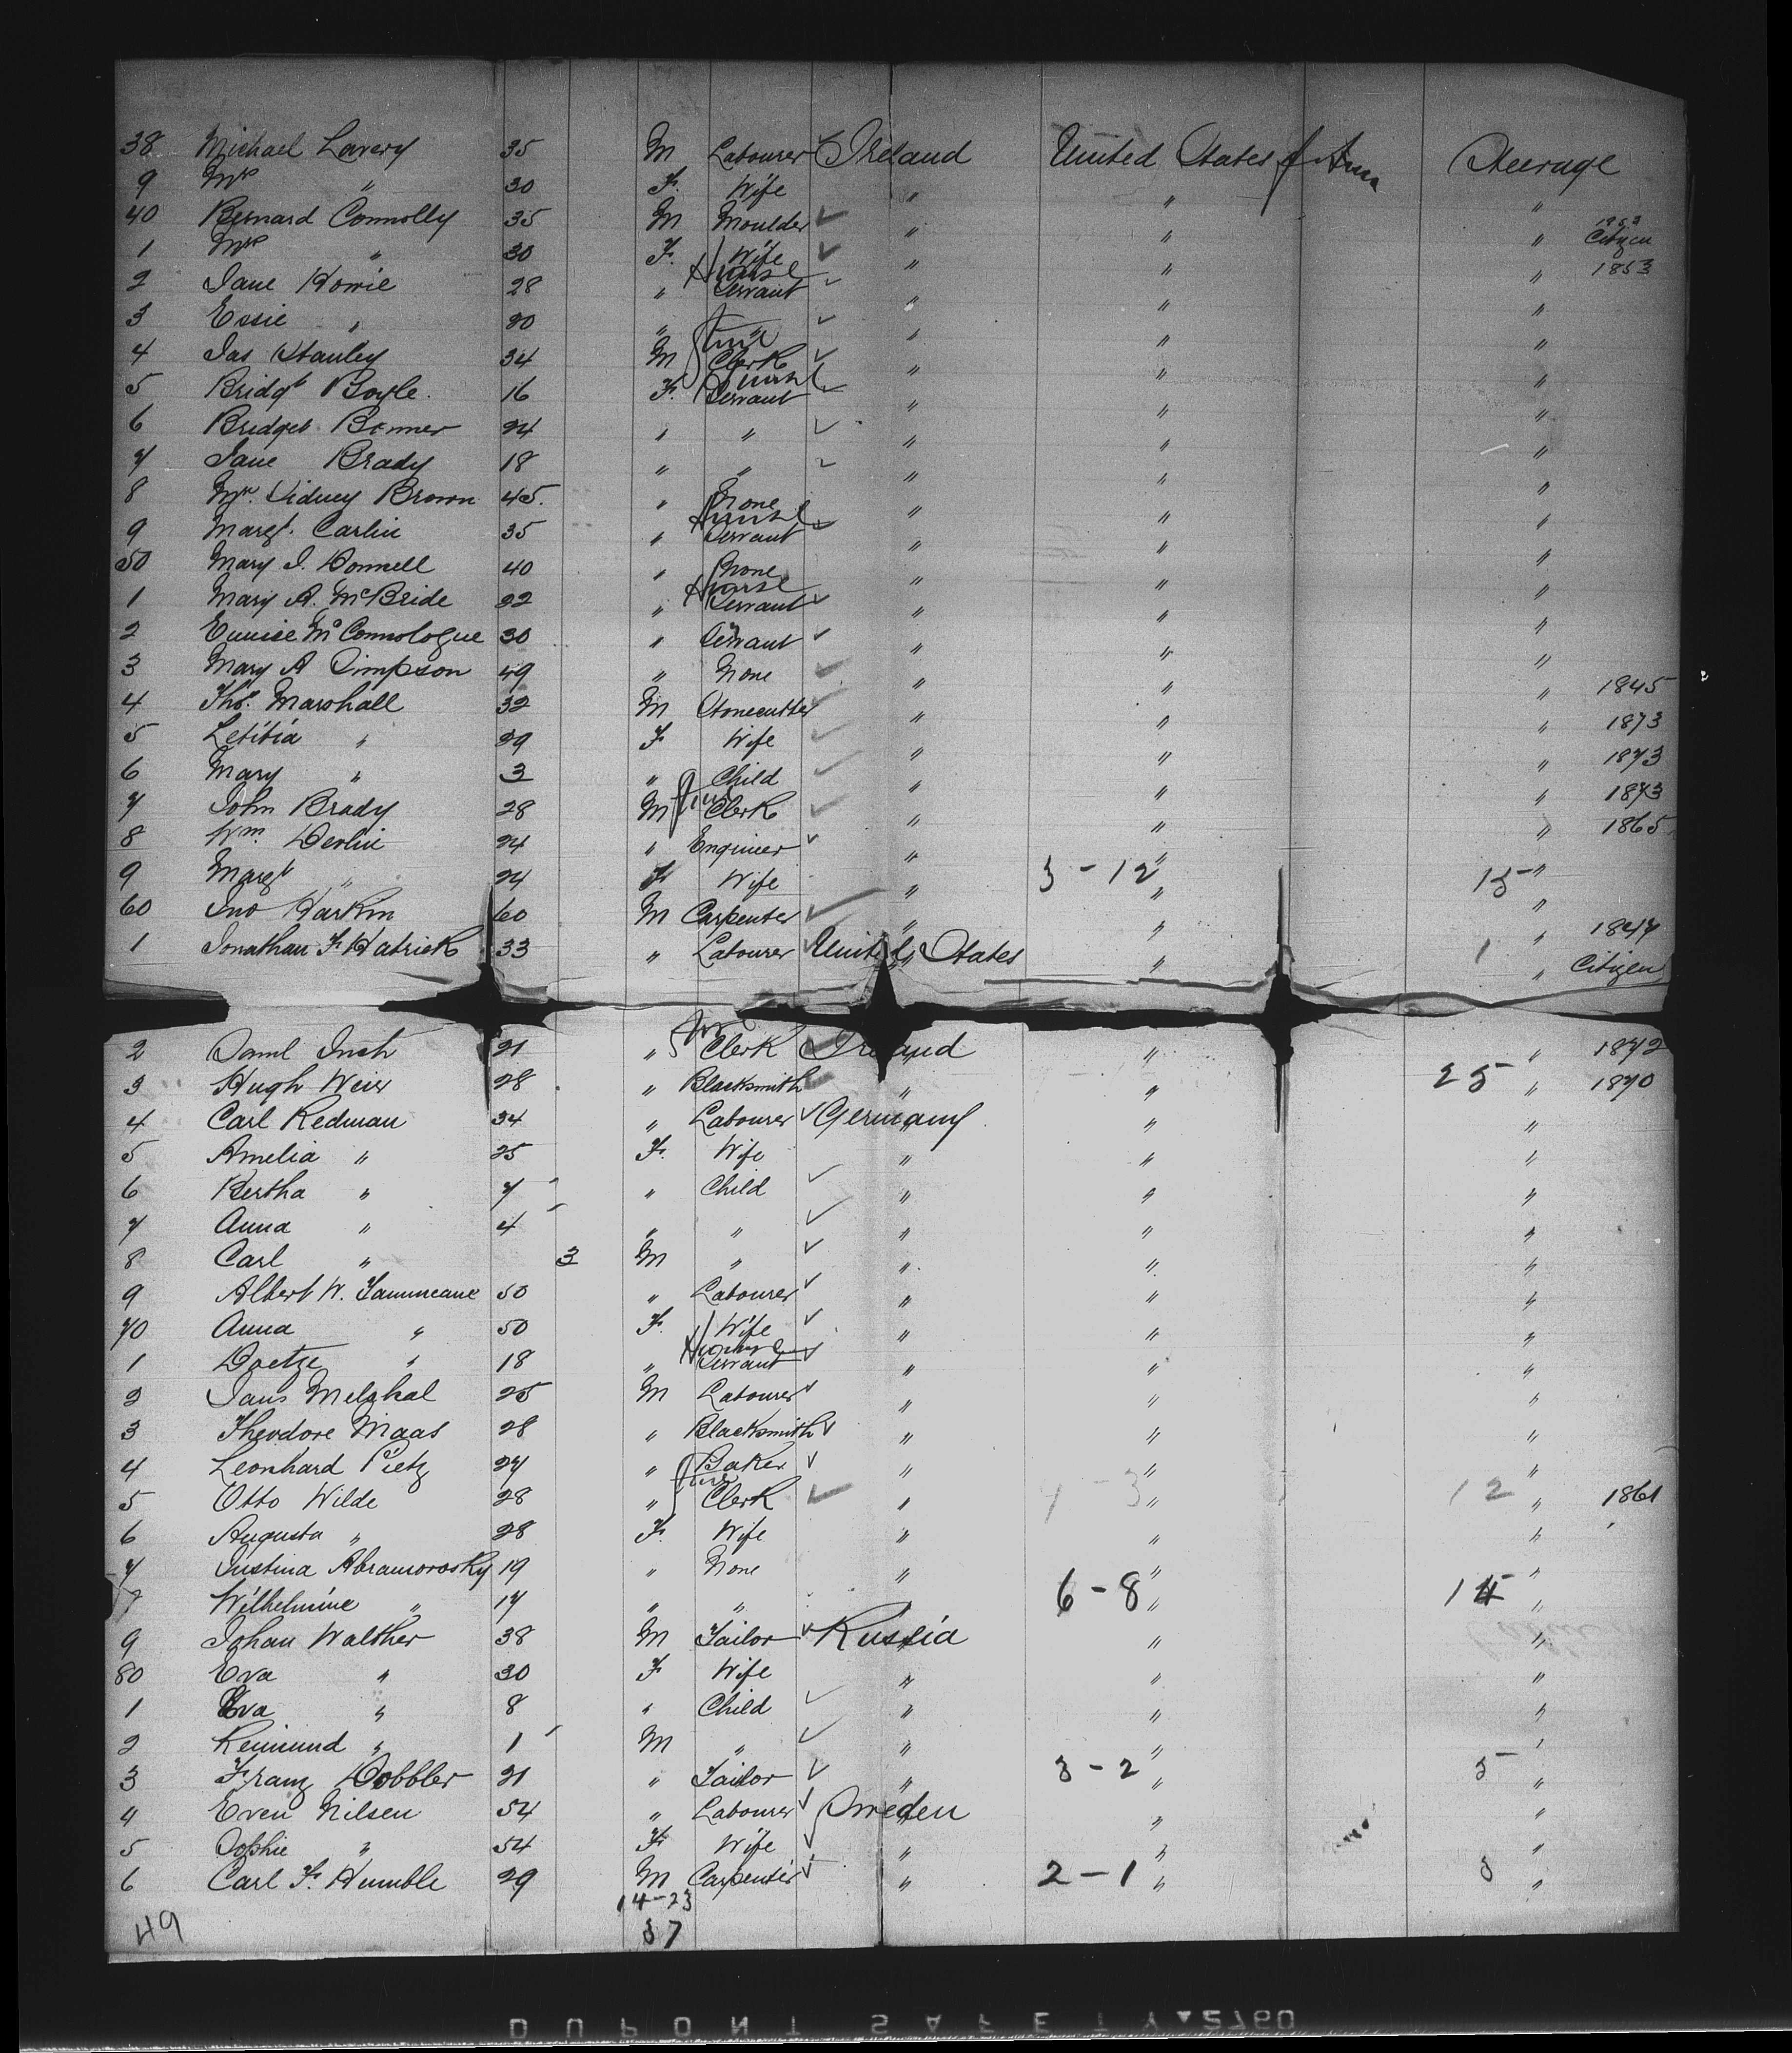 38 Michael Lavery 35 M Labourer Ireland United States of Ama Steerage
9 Mrs " 30 F. Wife " " "
40 Bernard Connolly 35 M Moulder " " " 1853 Citizen
1 Mrs " 30 F. Wife " " " 1853
2 Jane Howie 28 " House Servant " " "
3 Essie " 20 " " " " "
4 Jas Stanley 34 M Clerk " " "
5 Bridgt Boyle. 16 F. House Servant " " "
6 Bridget Bonner 24 " " " " "
7 Jane Brady 18 " " " " "
8 Mrs. Sidney Brown 45. " None " " "
9 Margt. Carlin 35 " House Servant " " "
50 Mary J. Donnell 40 " None " " "
1 Mary A. McBride 22 " House Servant " " "
2 Eunice McConnologue 30 " Servant " " "
3 Mary A Simpson 49 " None " " " 1845
4 Thos. Marshall 32 M Stonecutter " " " 1873
5 Letitia " 29 F Wife " " " 1873
6 Mary " 3 " Child " " " 1873
7 John Brady 28 M Clerk " " " 1865
8 Wm. Devlin 24 " Engineer " " "
9 Margt " 24 F Wife " 3-12 " 15 "
60 Jno Harkin 60 M Carpenter " " " 1847
1 Jonathan F. Hatrick 33 " Labourer United States " 1 " Citizen
2 Saml Inch 21 " Clerk Ireland " " 1872
3 Hugh Weir 28 " Blacksmith " " 25 " 1870
4 Carl Redman 34 " Labourer Germany " "
5 Amelia " 25 F. Wife " " "
6 Bertha " 7 " Child " " "
7 Anna " 4 " " " " "
8 Carl " 3 M " " " "
9 Albert W. 50 " Labourer " " "
70 Anna " 50 F. Wife " " "
1 " 18 " House Servant " " "
2 25 M Labourer " " "
3 Theodore Maas 28 " Blacksmith " " "
4 Leonhard Pietz 27 " Baker " " "
5 Otto Wilde 28 " Clerk " 7-3 " 12 " 1861
6 Augusta " 28 F. Wife " " "
7 Justina Abramorosky 19 " None " " "
Wilhelmine " 17 " " " 6-8 " 14 "
9 Johan Walther 38 M Tailor Russia " "
80 Eva " 30 F Wife " " "
1 Eva " 8 " Child " " "
2 Reimund " 1 M " " " "
3 Franz Dobbler 21 " Tailor " 3-2 " 5 "
4 Even Nilsen 54 " Labourer Sweden " "
5 Sophie " 54 F. Wife " " "
6 Carl F. Humble 29 M Carpenter " 2-1 " 3 "
14-23
49 37
DUPONT SAFETY 2760